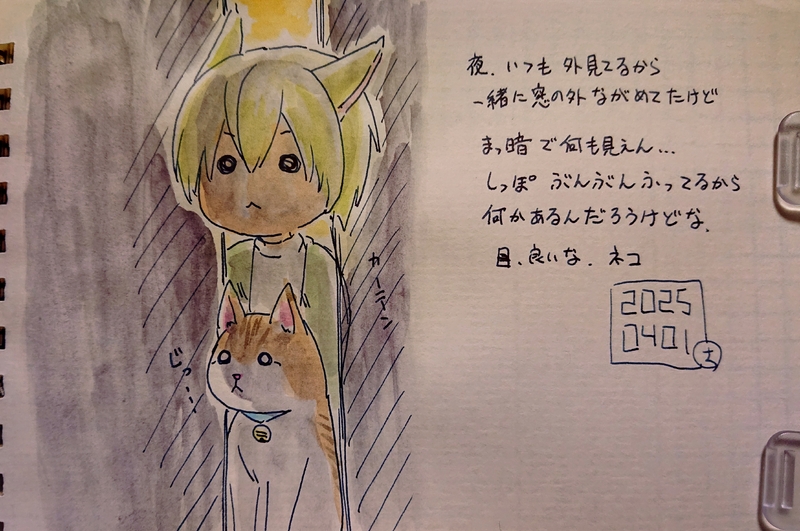 夜、いつも外見てるから
一緒に窓の外ながめてたけど
まっ暗で何も見えん…
しっぽぶんぶんふってるから
何かあるんだろうけどな。
目、良いな、ネコ
2025
0401
カーテン
じっ…